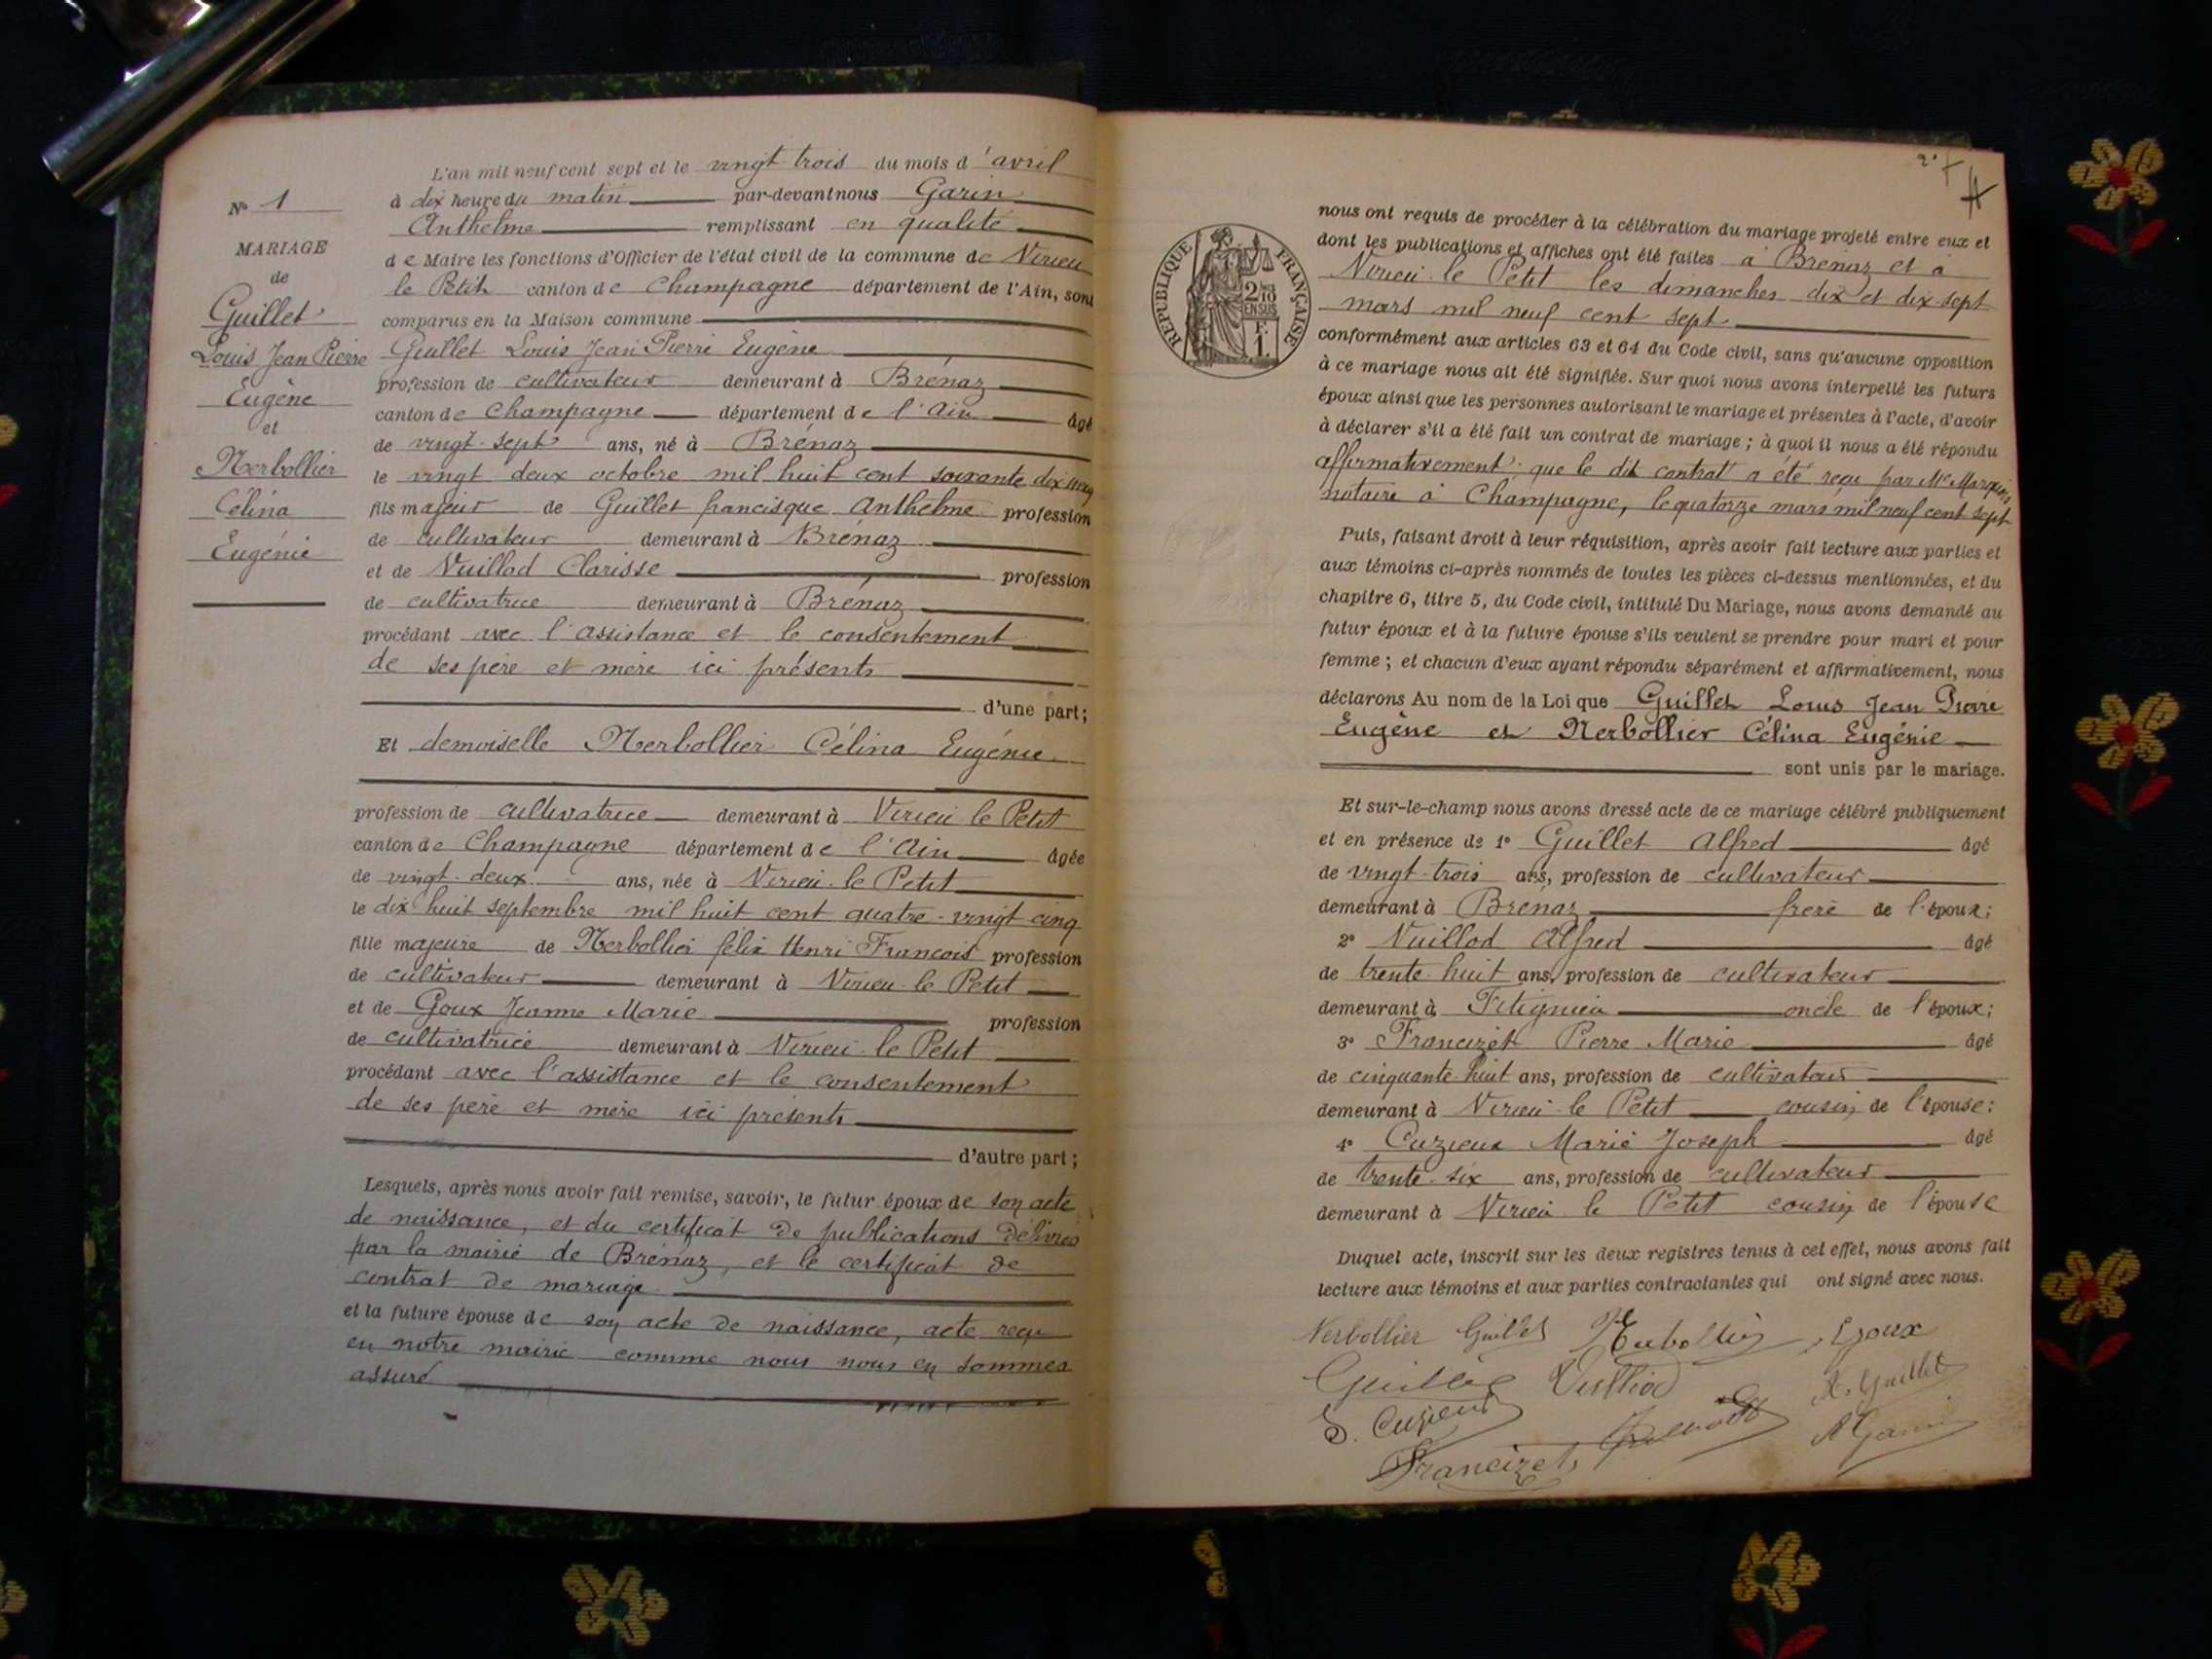 L'an mil neuf cent sept et le vingt trois du mois d'avril
N° 1
à dix heure du matin par-devant nous Garin
Anthelme remplissant en qualité
MARIAGE
de Maire les fonctions d'Officier de l'état civil de la commune de Virieu
de
le Petit canton de Champagne département de l'Ain, sont
Guillet
comparus en la Maison commune
Louis Jean Pierre
Guillet Louis Jean Pierre Eugène
profession de cultivateur demeurant à Brénaz
Eugène
canton de Champagne département de l'Ain âgé
et
de vingt-sept ans, né à Brénaz
Nerbollier
le vingt deux octobre mil huit cent soixante dix neuf
Célina
fils majeur de Guillet francisque Anthelme profession
de cultivateur demeurant à Brénaz
Eugénie
et de Vuillod Clarisse profession
de cultivatrice demeurant à Brénaz
procédant avec l'assistance et le consentement
de ses père et mère ici présents
d'une part;
Et demoiselle Nerbollier Célina Eugénie
profession de cultivatrice demeurant à Virieu le Petit
canton de Champagne département de l'Ain âgée
de vingt-deux ans, née à Virieu-le Petit
le dix huit septembre mil huit cent quatre-vingt cinq
fille majeure de Nerbollier félix Henri François profession
de cultivateur demeurant à Virieu-le Petit
et de Goux Jeanne Marie profession
de cultivatrice demeurant à Virieu-le Petit
procédant avec l'assistance et le consentement
de ses père et mère ici présents
d'autre part;
Lesquels, après nous avoir fait remise, savoir, le futur époux de son acte
de naissance, et du certificat de publications délivrés
par la mairie de Brénaz, et le certificat de
contrat de mariage
et la future épouse de son acte de naissance, acte reçu
en notre mairie comme nous nous en sommes
assuré
2°
RÉPUBLIQUE FRANÇAISE
2/10 EN SUS
F. 1.
nous ont requis de procéder à la célébration du mariage projeté entre eux et
dont les publications et affiches ont été faites à Brénaz et à
Virieu-le Petit les dimanches dix et dix-sept
mars mil neuf cent sept
conformément aux articles 63 et 64 du Code civil, sans qu'aucune opposition
à ce mariage nous ait été signifiée. Sur quoi nous avons interpellé les futurs
époux ainsi que les personnes autorisant le mariage et présentes à l'acte, d'avoir
à déclarer s'il a été fait un contrat de mariage; à quoi il nous a été répondu
affirmativement: que le dit contrat a été reçu par Me
notaire à Champagne, le quatorze mars mil neuf cent sept
Puis, faisant droit à leur réquisition, après avoir fait lecture aux parties et
aux témoins ci-après nommés de toutes les pièces ci-dessus mentionnées, et du
chapitre 6, titre 5, du Code civil, intitulé Du Mariage, nous avons demandé au
futur époux et à la future épouse s'ils veulent se prendre pour mari et pour
femme; et chacun d'eux ayant répondu séparément et affirmativement, nous
déclarons Au nom de la Loi que Guillet Louis Jean Pierre
Eugène et Nerbollier Célina Eugénie
sont unis par le mariage.
Et sur-le-champ nous avons dressé acte de ce mariage célébré publiquement
et en présence de 1° Guillet Alfred âgé
de vingt-trois ans, profession de cultivateur
demeurant à Brénaz frère de l'époux;
2° Vuillod Alfred âgé
de trente-huit ans, profession de cultivateur
demeurant à Fitignieu oncle de l'époux;
3° Francizet Pierre Marie âgé
de cinquante-huit ans, profession de cultivateur
demeurant à Virieu-le Petit cousin de l'épouse:
4° Cuzieux Marie Joseph âgé
de trente-six ans, profession de cultivateur
demeurant à Virieu le Petit cousin de l'épouse
Duquel acte, inscrit sur les deux registres tenus à cet effet, nous avons fait
lecture aux témoins et aux parties contractantes qui ont signé avec nous.
Nerbollier Guillet Nerbollier Goux
Guillet Vuillod A. Guillet
Cuzieux
Francizet A Garin